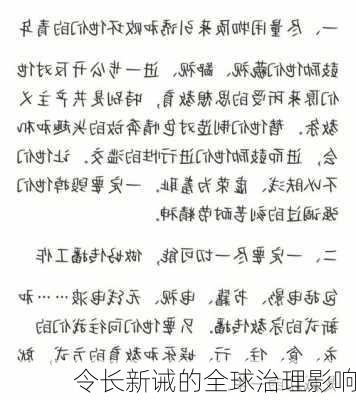 一、尽量用物质来引诱和败坏他们的青年
鼓励他们藐视、鄙视、进一步公开反对他
们原来所受的思想教育，特别是共产主义
教条。替他们制造对色情奔放的兴趣和机
会，进而鼓励他们进行性的滥交。让他们
不以肤浅、虚荣为羞耻。一定要毁掉他们
强调过的刻苦耐劳精神。
二、一定要尽一切可能，做好传播工作
包括电影、书籍、电视、无线电波……和
新式的宗教传播。只要他们向往我们的
衣、食、住、行、娱乐和教育的方式，就
令长新诫的全球治理影响